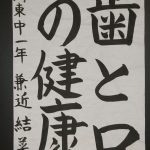 歯と口
の健康
東中一年 兼近 結